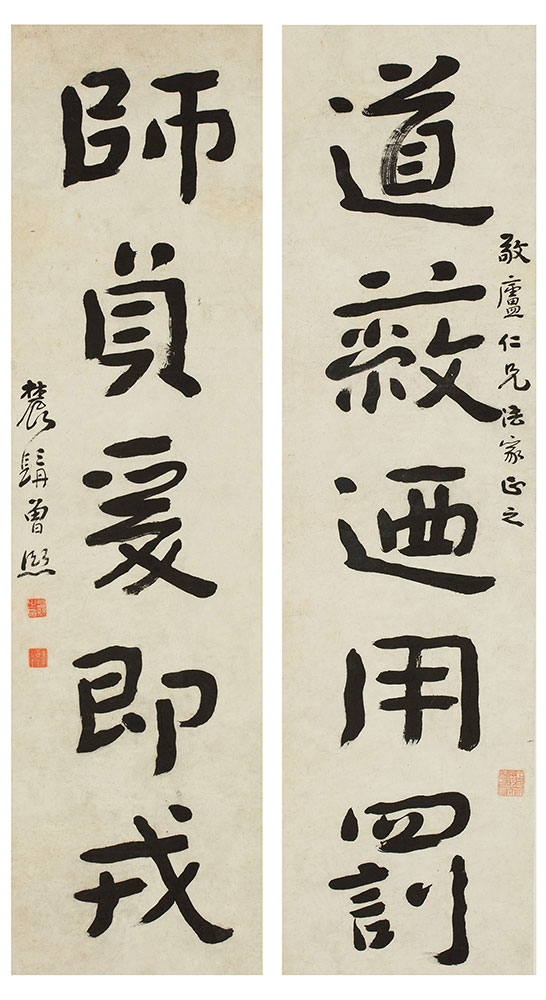 敬廬仁兄法家正之
道蔽迺用罰
師貞爰即戎
農髯曾熙